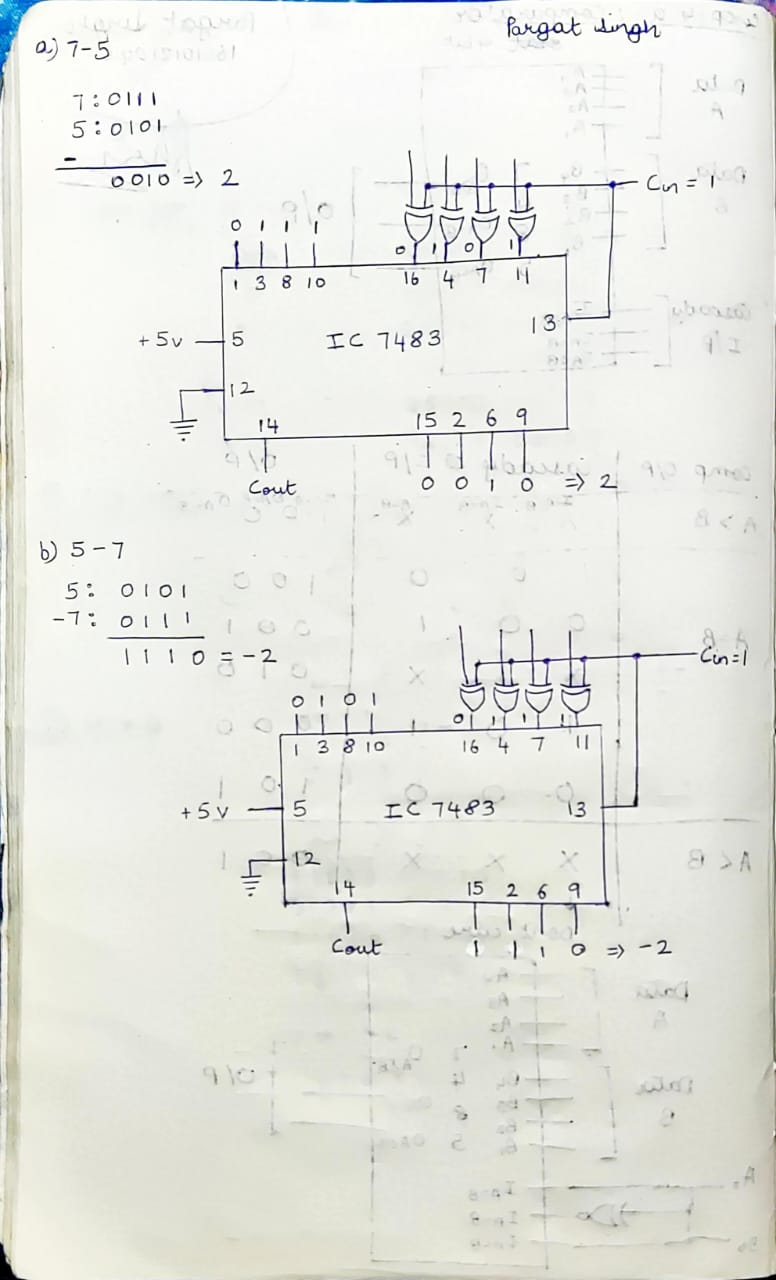 Pargat Singh
a.) 7-5
7:0111
5:0101
-
0010 => 2
Cin = 1
0 1 1 1
0 1 0 1
1 3 8 10 16 4 7 11
13
+5v 5 IC 7483
12
14 15 2 6 9
Cout 0 0 1 0 => 2
b) 5-7
5: 0101
-7: 0111
1110 = -2
Cin=1
0 1 0 1
0 1 1 1
1 3 8 10 16 4 7 11
+5v 5 IC 7483 13
12
14 15 2 6 9
Cout 1 1 1 0 => -2